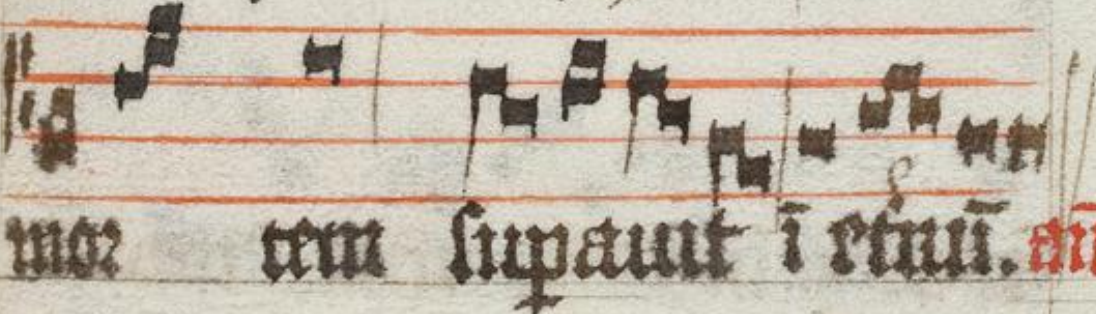 mor tem supauit ī et̉nū. an̄